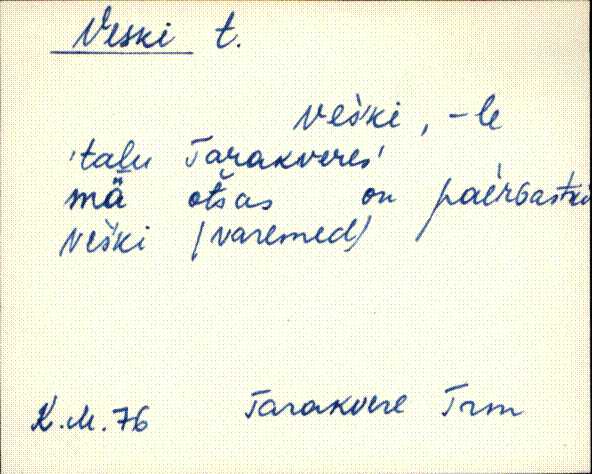 Veski t.
veški, -le
'talu Tarakveres'
mä̅ otšas on paèrbastki
veški (varemed)
K.M. 76 Tarakvere Trm